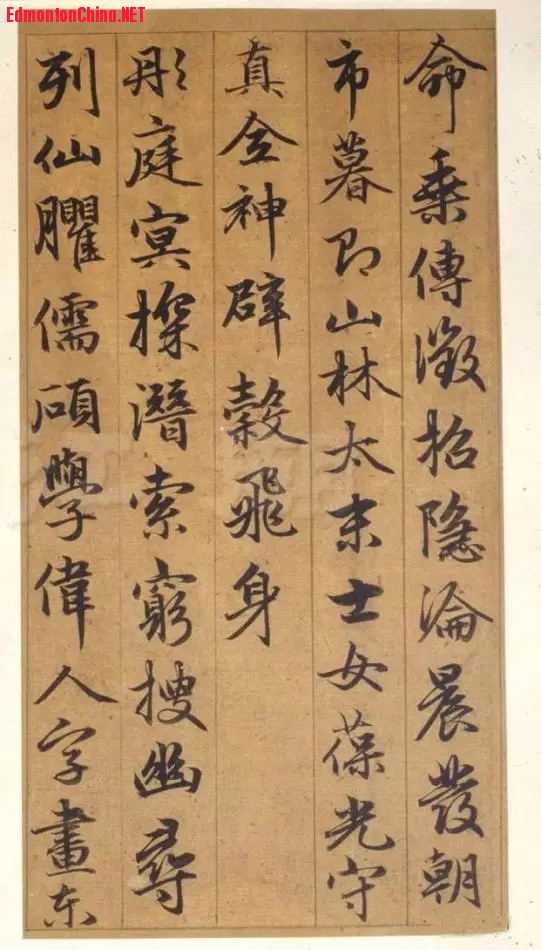 EdmontonChina.NET
命乗傳徵招隐淪晨發朝
市暮即山林太末士女葆光守
真全神辟穀飛身
彤庭冥探潛索窮搜幽尋
列仙臞儒碩學偉人字畫東